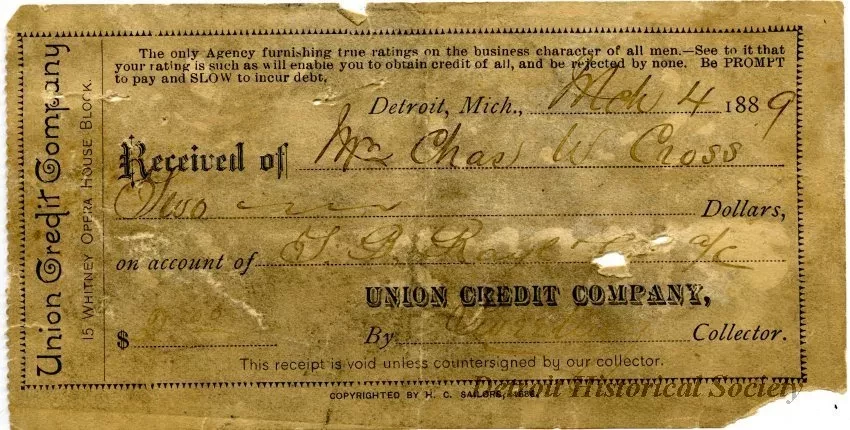 Union Credit Company
15 WHITNEY OPERA HOUSE BLOCK.
The only Agency furnishing true ratings on the business character of all men.—See to it that
your rating is such as will enable you to obtain credit of all, and be rejected by none. Be PROMPT
to pay and SLOW to incur debt.
Detroit, Mich., Mch 4 1889
Received of Mr Chas W Cross
Two Dollars,
on account of a/c
UNION CREDIT COMPANY,
$ By Collector.
This receipt is void unless countersigned by our collector.
COPYRIGHTED BY H. C. SAILORS,
Detroit Historical Society